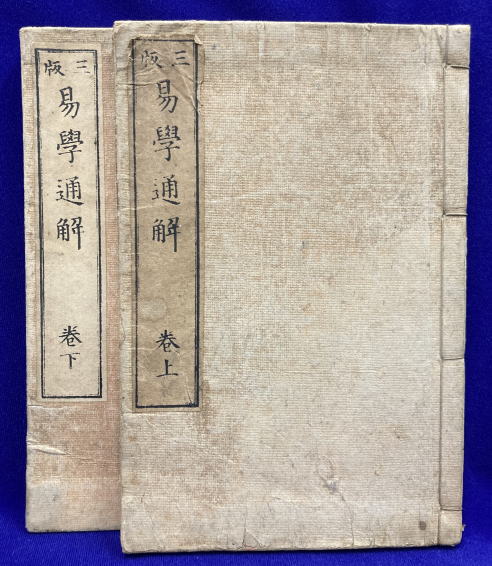 三版
易學通解
卷上
三版
易學通解
卷下